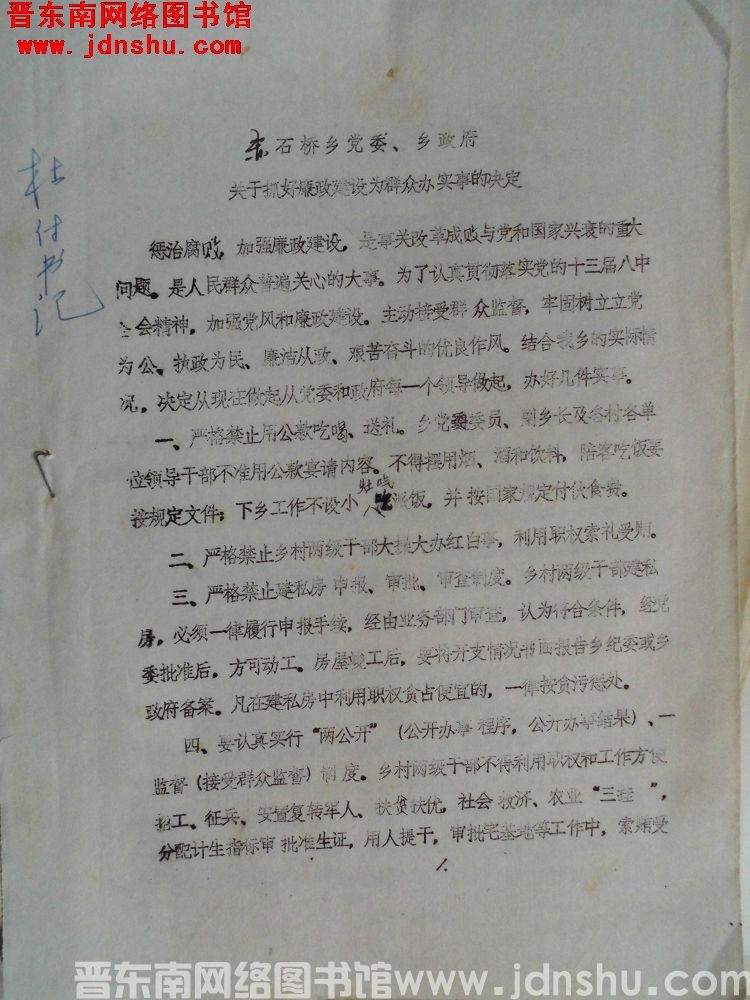 晋东南网络图书馆
www.jdnshu.com
杜付书记
赤石桥乡党委、乡政府
关于抓好廉政建设为群众办实事的决定
惩治腐败，加强廉政建设，是事关改革成败与党和国家兴衰的重大
问题。是人民群众普遍关心的大事。为了认真贯彻落实党的十三届八中
全会精神，加强党风和廉政建设。主动接受群众监督，牢固树立立党
为公。执政为民、廉洁从政、艰苦奋斗的优良作风。结合我乡的实际情
况，决定从现在做起从党委和政府每一个领导做起，办好几件实事。
一、严格禁止用公款吃喝、送礼。乡党委委员、副乡长及各村各单
位领导干部不准用公款宴请内容。不得摆用烟、酒和饮料，陪客吃饭要
按规定文件；下乡工作不设小灶吃派饭，并按国家规定付伙食费。
二、严格禁止乡村两级干部大操大办红白事，利用职权索礼受贿。
三、严格禁止建私房申报、审批、审查制度。乡村两级干部建私
房，必须一律履行申报手续，经由业务部门审查，认为符合条件，经党
委批准后，方可动工。房屋竣工后，要将开支情况书面报告乡纪委或乡
政府备案。凡在建私房中利用职权贪占便宜的，一律按贪污惩处。
四、要认真实行“两公开”（公开办事程序，公开办事结果）、一
监督（接受群众监督）制度。乡村两级干部不得利用职权和工作方便
招工、征兵、安置复转军人、扶贫扶优，社会救济、农业“三挂”，
分配计生指标审批准生证，用人提干，审批宅基地等工作中，索贿受
1.
晋东南网络图书馆www.jdnshu.com